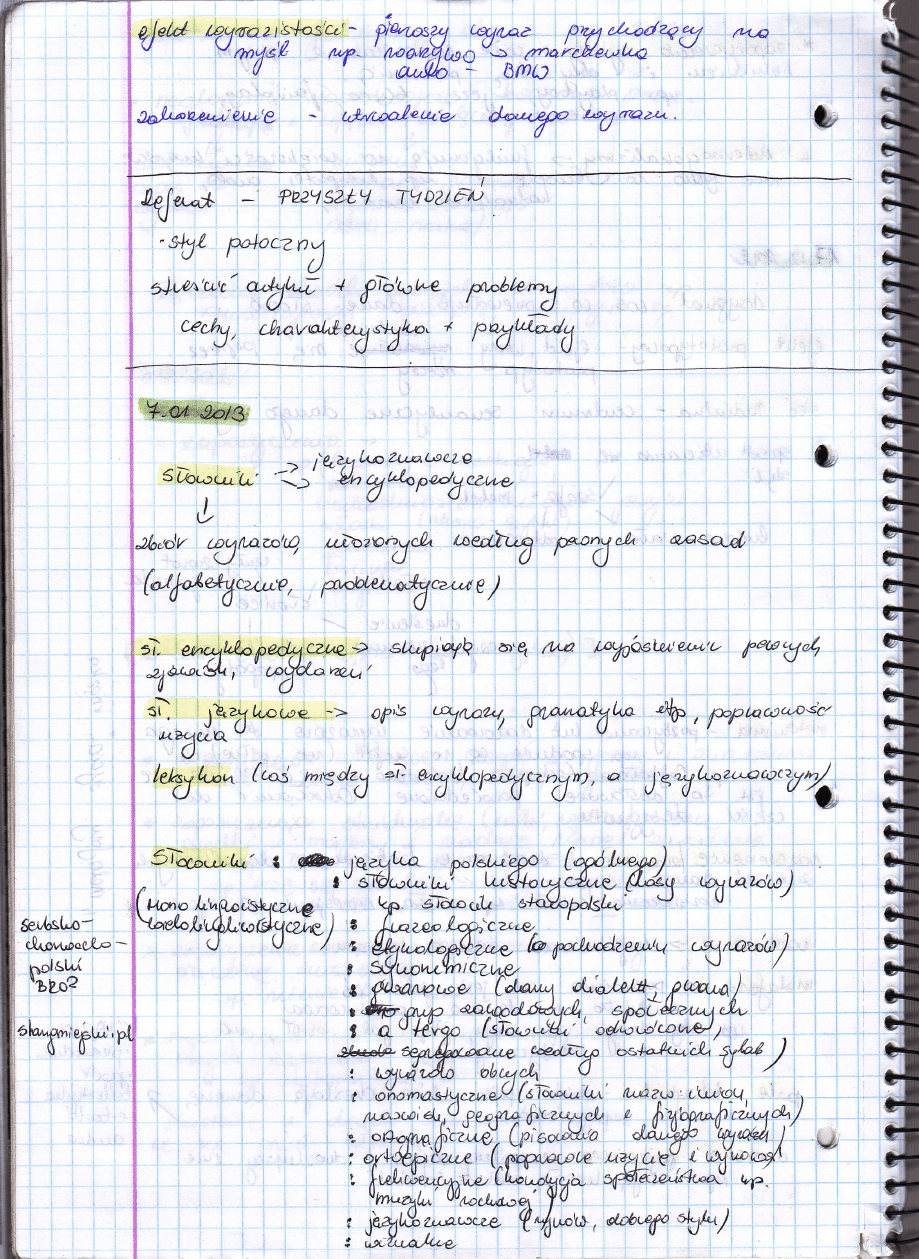 efekt wyrazistości - pierwszy wyraz przychodzący na
myśl np. warzywo → marchewka
auto - BMW
zakorzenienie - utrwalenie danego wyrazu.
Referat - PRZYSZŁY TYDZIEŃ
• styl potoczny
streścić artykuł + główne problemy
cechy, charakterystyka + przykłady
7.01 2013
Słowniki → językoznawcze
→ encyklopedyczne
↓
zbiór wyrazów, ułożonych według pewnych zasad
(alfabetycznie, problematycznie)
sł. encyklopedyczne → skupiają się na wyjaśnieniu pewnych
zjawisk, wydarzeń
sł. językowe → opis wyrazy, gramatyka etp, poprawność
użycia
leksykon (coś między sł. encyklopedycznym, a językoznawczym)
Słowniki : języka polskiego (ogólnego)
: słowniki historyczne (losy wyrazów)
(monolingwistyczne
np. słownik staropolski
: frazeologiczne
: etymologiczne (o pochodzeniu wyrazów)
: synonimiczne
: gwarowe (dany dialekt, gwara)
: grup zawodowych, społecznych
: a tergo (słowniki odwrócone,
segregowane według ostatnich sylab)
: wyrazów obcych
: onomastyczne (słowniki nazw imion,
nazwisk, geograficznych i fizjograficznych)
: ortograficzne (pisownia danego wyrazu)
: ortoepiczne (poprawne użycie i wymowa)
: frekwencyjne (kondycja społeczeństwa np.
muzyki rockowej)
: językoznawcze (rymów, dobrego stylu)
: wizualne
serbsko-
chorwacko-
polski
slangmiejski.pl